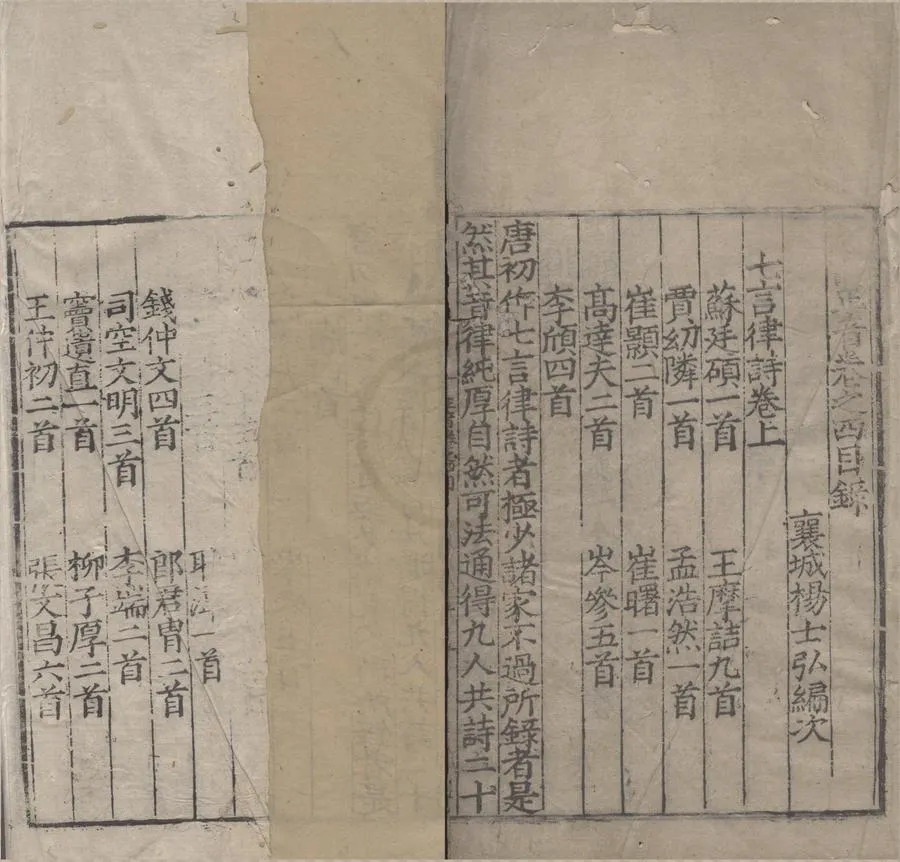 正音卷之四目錄
襄城楊士弘編次
七言律詩卷上
蘇廷碩一首 王摩詰九首
賈幼隣一首 孟浩然一首
崔顥二首 崔曙一首
高達夫二首 岑參五首
李頎四首
唐初作七言律詩者極少諸家不過所錄者是
然其音律純厚自然可法通得九人共詩二十
耿湋一首
錢仲文四首 郎君胄二首
司空文明三首 李端二首
竇遺直一首 柳子厚二首
王仲初二首 張文昌六首